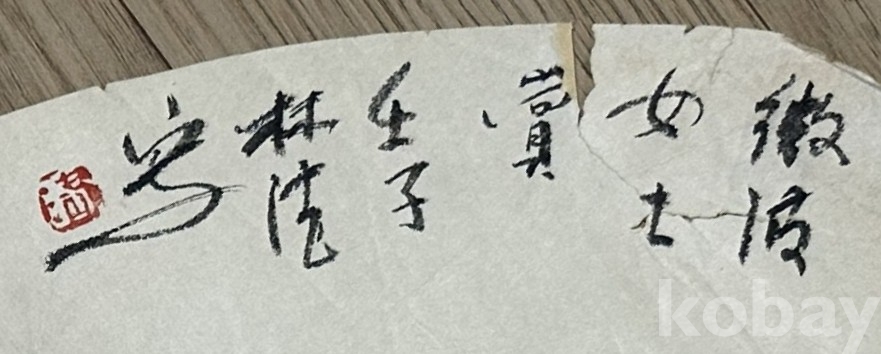 微波
女士
賞
壬子
林
写
kobay